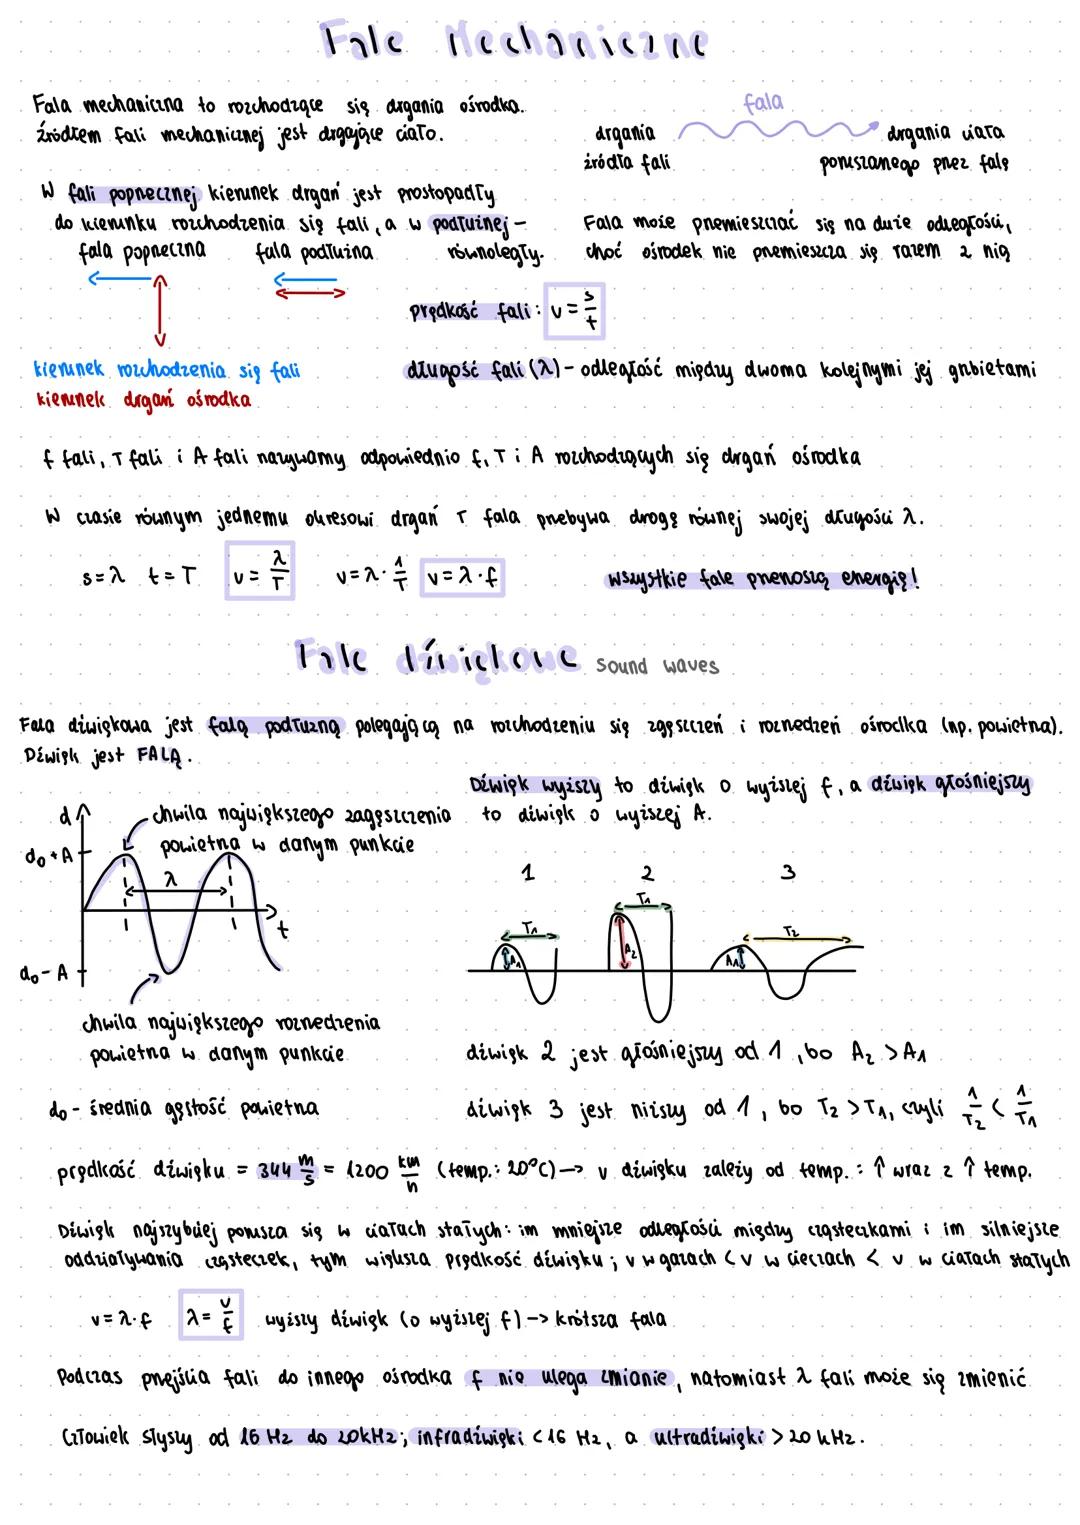 Fale Mechaniczne
Fala mechaniczna to rozchodzące się drgania ośrodka.
Źródłem fali mechanicznej jest drgające ciało.
fala
drgania źródła fali
drgania ciała poruszanego przez falę
W fali poprzecznej kierunek drgań jest prostopadły
do kierunku rozchodzenia się fali, a w podłużnej -
równoległy.
fala poprzeczna fala podłużna
Fala może przemieszczać się na duże odległości,
choć ośrodek nie przemieszcza się razem z nią
prędkość fali: v = s/t
kierunek rozchodzenia się fali
kierunek drgań ośrodka
długość fali (λ) - odległość między dwoma kolejnymi jej grzbietami
f fali, T fali i A fali nazywamy odpowiednio f, T i A rozchodzących się drgań ośrodka
W czasie równym jednemu okresowi drgań T fala przebywa drogę równej swojej długości λ.
s = λ t = T v = λ/T v = λ · 1/T v = λ · f wszystkie fale przenoszą energię!
Fale dźwiękowe sound waves
Fala dźwiękowa jest falą podłużną polegającą na rozchodzeniu się zgęszczeń i rozrzedzeń ośrodka (np. powietrza).
Dźwięk jest FALĄ.
Dźwięk wyższy to dźwięk o wyższej f, a dźwięk głośniejszy
to dźwięk o wyższej A.
d
d₀ + A
chwila największego zagęszczenia
powietrza w danym punkcie
λ
t
d₀ - A
chwila największego rozrzedzenia
powietrza w danym punkcie
1 2 3
T₁ T₁ T₂
A₁ A₂ A₁
dźwięk 2 jest głośniejszy od 1, bo A₂ > A₁
d₀ - średnia gęstość powietrza
dźwięk 3 jest niższy od 1, bo T₂ > T₁, czyli 1/T₂ < 1/T₁
prędkość dźwięku = 344 m/s = 1200 km/h (temp.: 20°C) -> v dźwięku zależy od temp.: ↑ wraz z ↑ temp.
Dźwięk najszybciej porusza się w ciałach stałych: im mniejsze odległości między cząsteczkami i im silniejsze
oddziaływania cząsteczek, tym większa prędkość dźwięku; v w gazach < v w cieczach < v w ciałach stałych
v = λ · f λ = v/f wyższy dźwięk (o wyższej f) -> krótsza fala
Podczas przejścia fali do innego ośrodka f nie ulega zmianie, natomiast λ fali może się zmienić
Człowiek słyszy od 16 Hz do 20kHz; infradźwięki < 16 Hz, a ultradźwięki > 20 kHz.